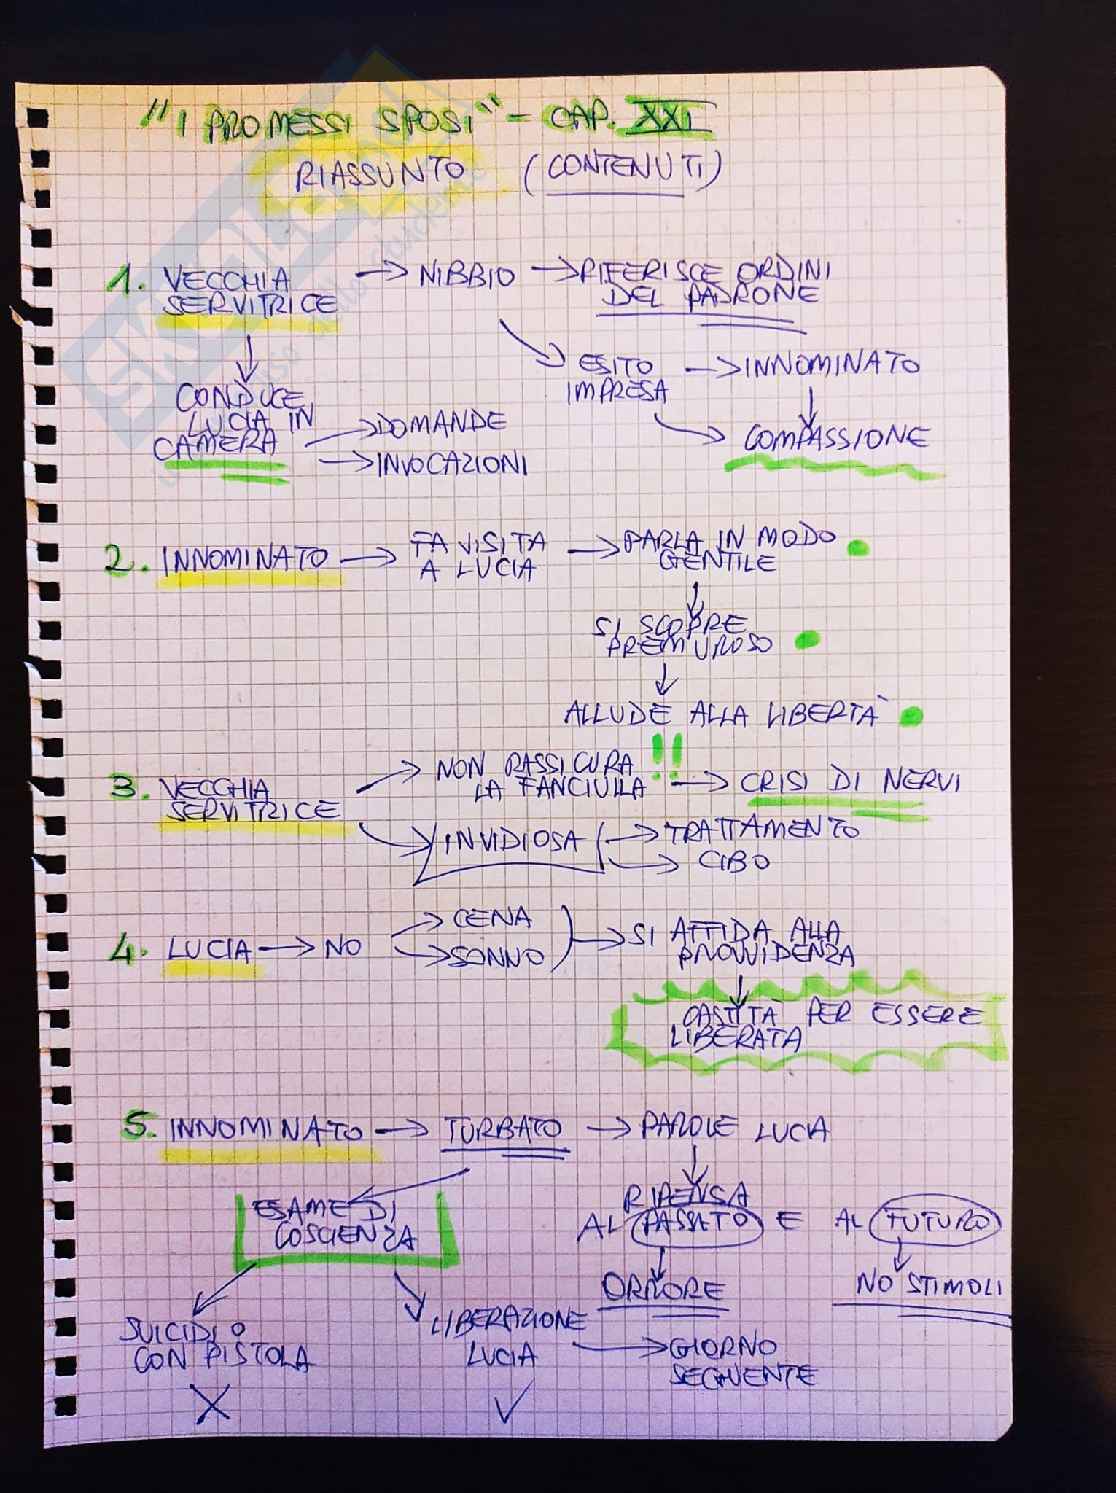 "I PROMESSI SPOSI" - CAP. XXI
RIASSUNTO (CONTENUTI)
1. VECCHIA SERVITRICE → NIBBIO → RIFERISCE ORDINI DEL PADRONE
ESITO IMPRESA → INNOMINATO
COMPASSIONE
CONDUCE
LUCIA IN
CAMERA
→ DOMANDE
→ INVOCAZIONI
2. INNOMINATO → FA VISITA A LUCIA → PARLA IN MODO GENTILE
SI SCOPRE
PREMUROSO
ALLUDE ALLA LIBERTÀ
3. VECCHIA SERVITRICE
NON RASSICURA LA FANCIULLA !! → CRISI DI NERVI
INVIDIOSA → TRATTAMENTO
→ CIBO
4. LUCIA → NO → CENA
→ SONNO
→ SI AFFIDA ALLA
PROVVIDENZA
CASTITÀ PER ESSERE
LIBERATA
5. INNOMINATO → TURBATO → PAROLE LUCIA
ESAME DI
COSCIENZA
RIPENSA
AL PASSATO E AL FUTURO
ORRORE
NO STIMOLI
SUICIDIO
CON PISTOLA
X
LIBERAZIONE
LUCIA
✓
→ GIORNO
SEGUENTE